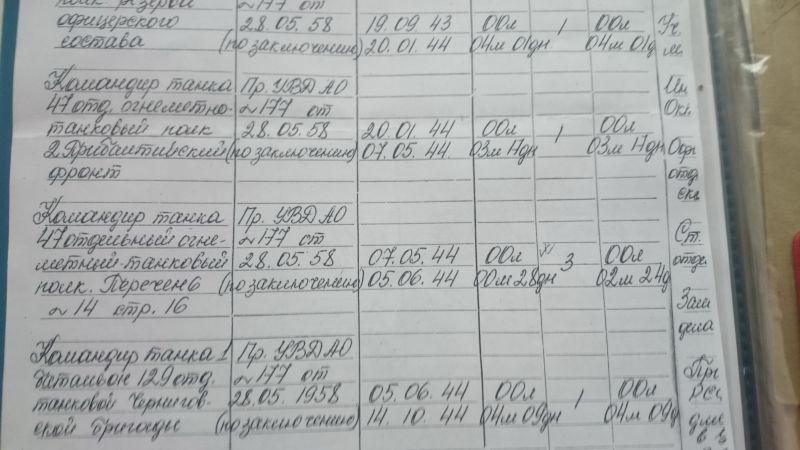 полк резерва ~177 от
офицерского 28.05.58 19.09.43 00л 1 00л
состава (по заключению) 20.01.44 04м 01дн 04м 01д
Командир танка Пр. УВД АО
47 отд. огнеметно- ~177 от
танковый полк 28.05.58 20.01.44 00л 1 00л
2 Прибалтийский (по заключению) 07.05.44. 03м 17дн 03м 17дн
фронт
Командир танка Пр. УВД АО
47 отдельный огне- ~177 от
метный танковый 28.05.58 07.05.44 00л 3 00л
полк. Перечень (по заключению) 05.06.44 00м 28дн 02м 24д
~14 стр. 16
Командир танка 1 Пр. УВД АО
батальон 129 отд. ~177 от
танковой Чернигов- 28.05.1958 05.06.44 00л 1 00л
ской бригады (по заключению) 14.10.44 04м 09дн 04м 09д
Ин
Окн.
Оф
отд.
скл
Ст.
отде.
Зам
дела
При